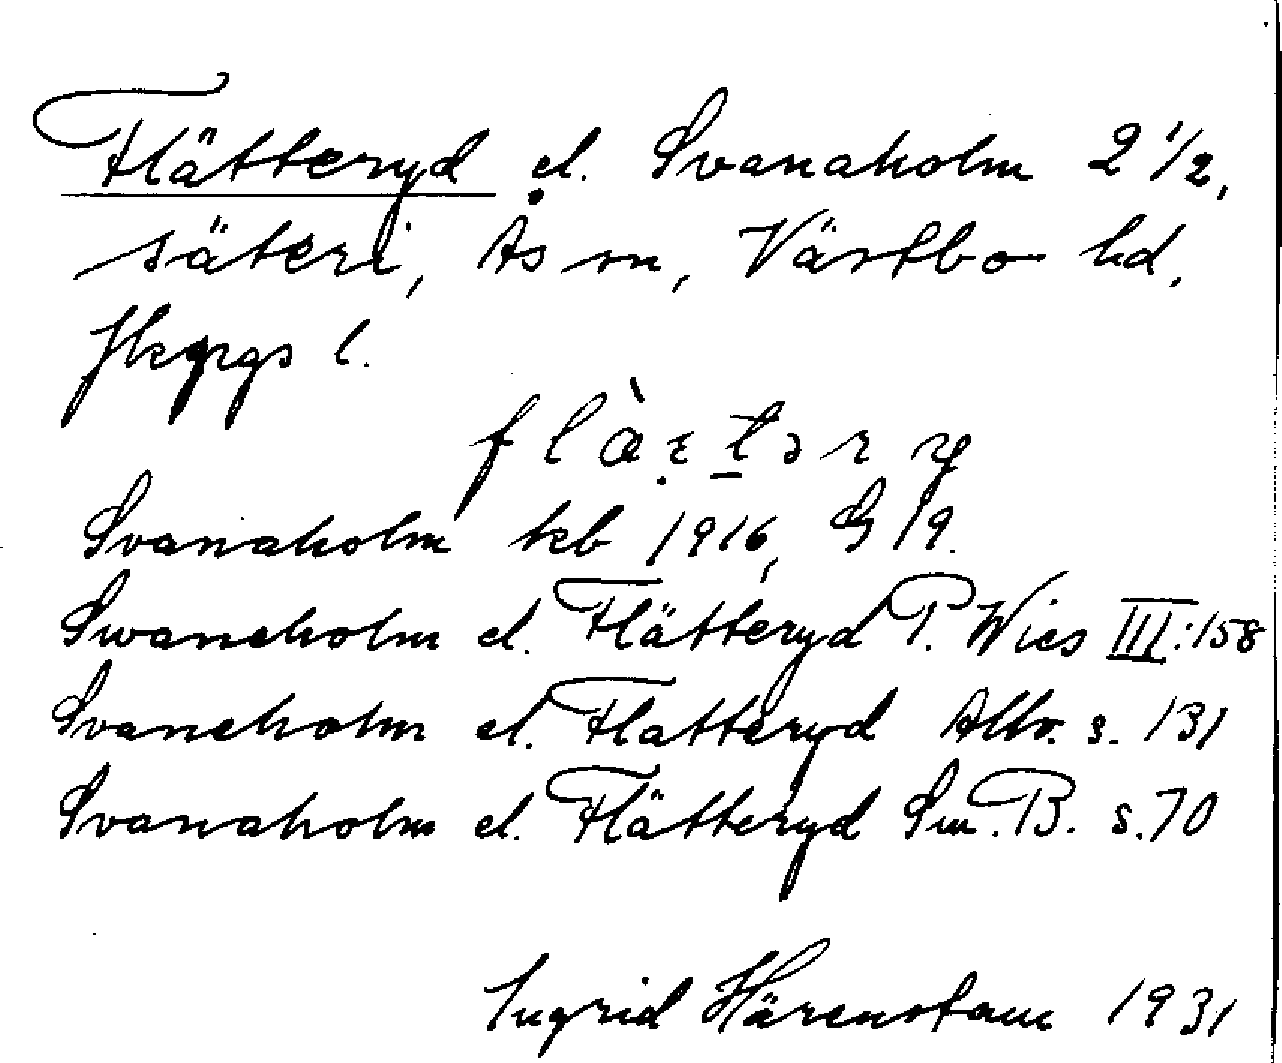 Flätteryd el. Svanaholm 2 1/2,
säteri, Ås sn, Västbo hd.
Jkpgs l.
Svanaholm kb 1916, G 19.
Swaneholm el. Flätteryd P. Wies III:158
Svaneholm el. Flatteryd Allv. s. 131
Svanaholm el. Flätteryd Sm. B. s. 70
Ingrid Härenstam 1931